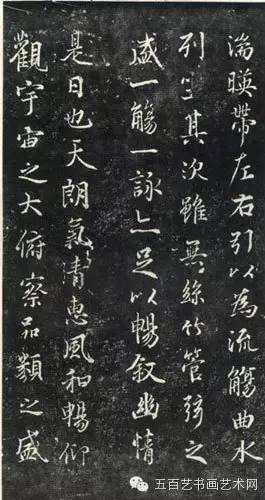 湍暎帶左右引以為流觴曲水
列坐其次雖無絲竹管弦之
盛一觴一詠亦足以暢敘幽情
是日也天朗氣清惠風和暢仰
觀宇宙之大俯察品類之盛
五百艺书画艺术网